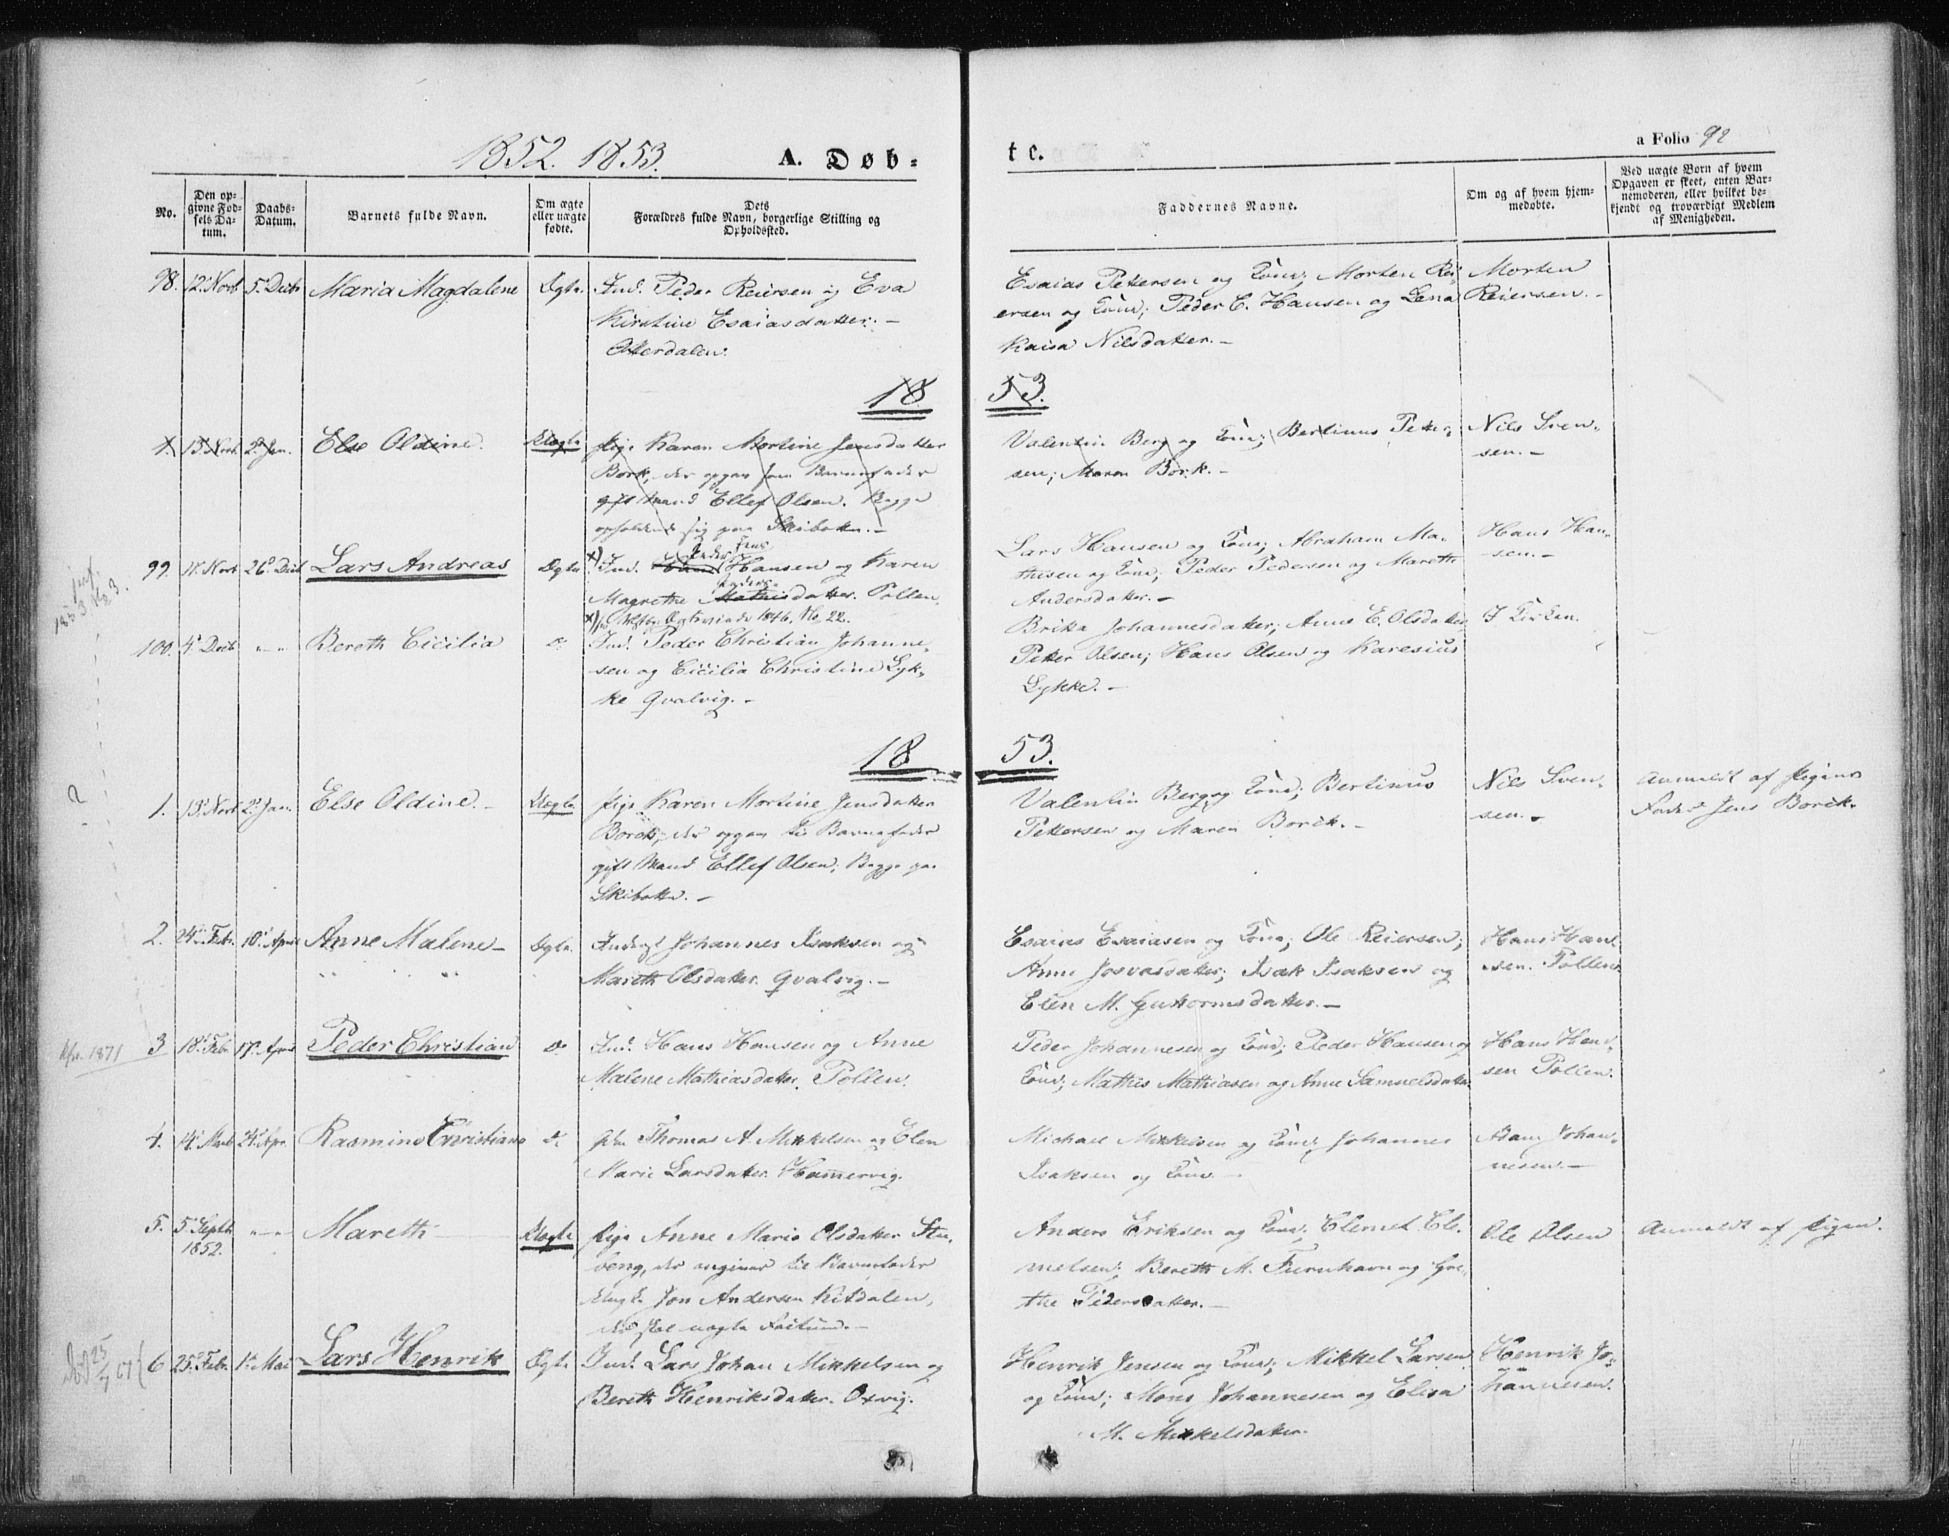 1852. 1853.
A. Døb-
te.
a Folio 92
No.
Den op-
givne Fød-
sels Da-
tum.
Daabs-
Datum.
Barnets fulde Navn.
Om ægte
eller uægte
fødte.
Dets
Forældres fulde Navn, borgerlige Stilling og
Opholdssted.
Faddernes Navne.
Om og af hvem hjem-
medøbte.
Ved uægte Børn af hvem
Opgaven er skeet, enten Bar-
nemoderen, eller hvilket be-
kjendt og troværdigt Medlem
af Menigheden.
98. 12' Novb 5' Decbr Maria Magdalene Ægte. Ind. Peder Reiersen og Eva
Kirstine Esaiasdatter. –
Otterdalen.
Esaias Pettersen og Kone; Morten Rei-
ersen og Kone; Peder C. Hansen og Lena
Kaisa Nilsdatter. –
Morten
Reiersen. –
18 53.
1. 13' Novb. 2' Jan. Else Oldine. Uægte Pige Karen Mortine Jensdatter
Bork, der opgav som Barnefader
gift Mand Ellef Olsen. Begge
opholdende sig paa Skibotten. –
Valentin Berg og Kone; Bertinus Petter-
sen; Maren Bork. –
Nils Sven-
sen. –
99. 11' Novb 26' Decb Lars Andreas Ægte x) Ind. Peder Jens Hansen og Karen
Magrethe Anders datter. Pollen.
1846. No. 22.
Lars Hansen og Kone; Abraham Ma-
thisen og Kone; Peder Pedersen og Mareth
Andersdatter. –
Hans Han-
sen. –
100. 4' Decb " – " Bereth Cicilia Do Ind. Peder Christian Johanne-
sen og Cicilia Christine Lyk-
ke Qvalvig. –
Brita Johannesdatter; Anne E. Olsdatter
Petter Olsen; Hans Olsen og Karesius
Lykke. –
I Kirken.
18 53.
1. 13' Novb 2' Jan. Else Oldine. – Uægte Pige Karen Mortine Jensdatter
Borck, der opgav til Barnefader
gift Mand Ellef Olsen; Begge paa
Skibotten. –
Valentin Berg og Kone; Bertinus
Pettersen og Maren Borck. –
Nils Sven-
sen. –
Anmeldt af Pigens
Fader Jens Borck.
2. 24' Febr. 10' April Anne Malene – Ægte. Inderst Johannes Isaksen og
Mareth Olsdatter. Qvalvig. –
Esaias Esaiasen og Kone; Ole Reiersen;
Anne Josvasdatter; Isak Isaksen og
Elen M. Guttormsdatter. –
Hans Han-
sen. Pollen.
Kfr. 1871
3 18' Feb. 17' April Peder Christian Do Ind. Hans Hansen og Anne
Malene Mathiasdatter. Pollen.
Peder Johannesen og Kone; Peder Hansen og
Kone; Mathis Mathiasen og Anne Samuelsdatter
Hans Han-
sen Pollen.
4. 14' Marts 24' Apr. Rasmine Christiane Do Thomas A Mikkelsen og Elen
Marie Larsdatter. Hamervig.
Michael Mikkelsen og Kone; Johannes
Isaksen og Kone. –
Adam Johan-
nesen. –
5. 5' Septb
1852. " – " Mareth Uægte Pige Anne Marie Olsdatter Stu-
beng, der angiver til Barnefader
Ungk. Jon Andersen Kitdalen,
Anders Eriksen og Kone; Clemet Cle-
metsen; Bereth M. Furuhavn og Gre-
the Pedersdatter. –
Ole Olsen
Anmeldt af Pigen.
6 25' Feb. 1' Mai Lars Henrik Ægte Ind. Lars Johan Mikkelsen og
Bereth Henriksdatter. Oxvig.
Henrik Jensen og Kone; Mikkel Larsen
og Kone; Mons Johannesen og Elisa
M. Mikkelsdatter.
Henrik Jo-
hannesen.